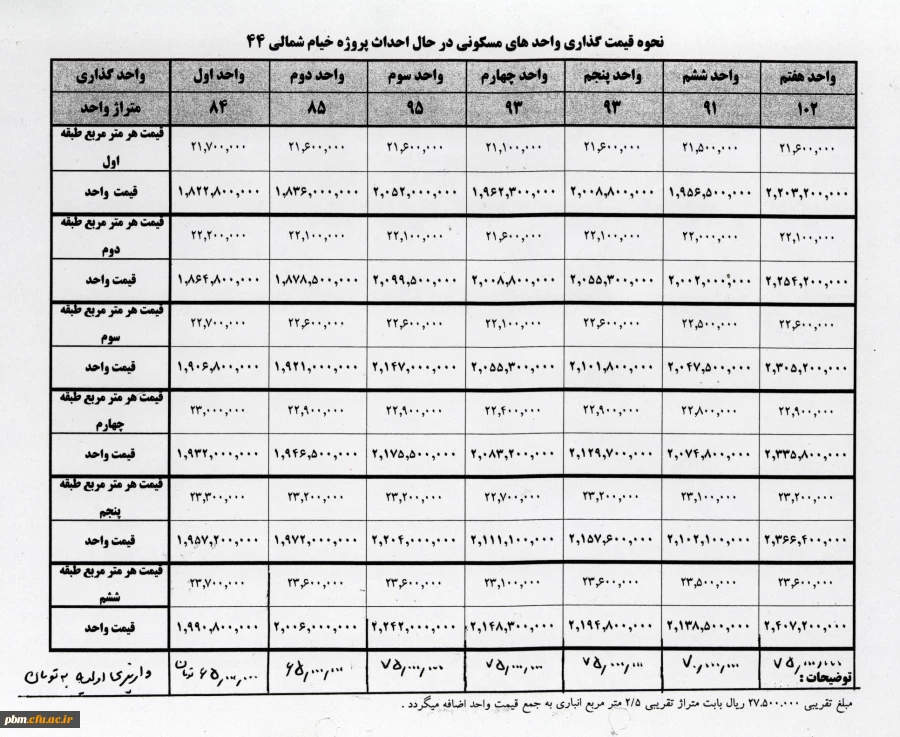 نحوه قیمت گذاری واحد های مسکونی در حال احداث پروژه خیام شمالی ۴۴
واحد گذاری واحد اول واحد دوم واحد سوم واحد چهارم واحد پنجم واحد ششم واحد هفتم
متراژ واحد ۸۴ ۸۵ ۹۵ ۹۳ ۹۳ ۹۱ ۱۰۲
قیمت هر متر مربع طبقه اول ۲۱,۷۰۰,۰۰۰ ۲۱,۶۰۰,۰۰۰ ۲۱,۶۰۰,۰۰۰ ۲۱,۱۰۰,۰۰۰ ۲۱,۶۰۰,۰۰۰ ۲۱,۵۰۰,۰۰۰ ۲۱,۶۰۰,۰۰۰
قیمت واحد ۱,۸۲۲,۸۰۰,۰۰۰ ۱,۸۳۶,۰۰۰,۰۰۰ ۲,۰۵۲,۰۰۰,۰۰۰ ۱,۹۶۲,۳۰۰,۰۰۰ ۲,۰۰۸,۸۰۰,۰۰۰ ۱,۹۵۶,۵۰۰,۰۰۰ ۲,۲۰۳,۲۰۰,۰۰۰
قیمت هر متر مربع طبقه دوم ۲۲,۲۰۰,۰۰۰ ۲۲,۱۰۰,۰۰۰ ۲۲,۱۰۰,۰۰۰ ۲۱,۶۰۰,۰۰۰ ۲۲,۱۰۰,۰۰۰ ۲۲,۰۰۰,۰۰۰ ۲۲,۱۰۰,۰۰۰
قیمت واحد ۱,۸۶۴,۸۰۰,۰۰۰ ۱,۸۷۸,۵۰۰,۰۰۰ ۲,۰۹۹,۵۰۰,۰۰۰ ۲,۰۰۸,۸۰۰,۰۰۰ ۲,۰۵۵,۳۰۰,۰۰۰ ۲,۰۰۲,۰۰۰,۰۰۰ ۲,۲۵۴,۲۰۰,۰۰۰
قیمت هر متر مربع طبقه سوم ۲۲,۷۰۰,۰۰۰ ۲۲,۶۰۰,۰۰۰ ۲۲,۶۰۰,۰۰۰ ۲۲,۱۰۰,۰۰۰ ۲۲,۶۰۰,۰۰۰ ۲۲,۵۰۰,۰۰۰ ۲۲,۶۰۰,۰۰۰
قیمت واحد ۱,۹۰۶,۸۰۰,۰۰۰ ۱,۹۲۱,۰۰۰,۰۰۰ ۲,۱۴۷,۰۰۰,۰۰۰ ۲,۰۵۵,۳۰۰,۰۰۰ ۲,۱۰۱,۸۰۰,۰۰۰ ۲,۰۴۷,۵۰۰,۰۰۰ ۲,۳۰۵,۲۰۰,۰۰۰
قیمت هر متر مربع طبقه چهارم ۲۳,۰۰۰,۰۰۰ ۲۲,۹۰۰,۰۰۰ ۲۲,۹۰۰,۰۰۰ ۲۲,۴۰۰,۰۰۰ ۲۲,۹۰۰,۰۰۰ ۲۲,۸۰۰,۰۰۰ ۲۲,۹۰۰,۰۰۰
قیمت واحد ۱,۹۳۲,۰۰۰,۰۰۰ ۱,۹۴۶,۵۰۰,۰۰۰ ۲,۱۷۵,۵۰۰,۰۰۰ ۲,۰۸۳,۲۰۰,۰۰۰ ۲,۱۲۹,۷۰۰,۰۰۰ ۲,۰۷۴,۸۰۰,۰۰۰ ۲,۳۳۵,۸۰۰,۰۰۰
قیمت هر متر مربع طبقه پنجم ۲۳,۳۰۰,۰۰۰ ۲۳,۲۰۰,۰۰۰ ۲۳,۲۰۰,۰۰۰ ۲۲,۷۰۰,۰۰۰ ۲۳,۲۰۰,۰۰۰ ۲۳,۱۰۰,۰۰۰ ۲۳,۲۰۰,۰۰۰
قیمت واحد ۱,۹۵۷,۲۰۰,۰۰۰ ۱,۹۷۲,۰۰۰,۰۰۰ ۲,۲۰۴,۰۰۰,۰۰۰ ۲,۱۱۱,۱۰۰,۰۰۰ ۲,۱۵۷,۶۰۰,۰۰۰ ۲,۱۰۲,۱۰۰,۰۰۰ ۲,۳۶۶,۴۰۰,۰۰۰
قیمت هر متر مربع طبقه ششم ۲۳,۷۰۰,۰۰۰ ۲۳,۶۰۰,۰۰۰ ۲۳,۶۰۰,۰۰۰ ۲۳,۱۰۰,۰۰۰ ۲۳,۶۰۰,۰۰۰ ۲۳,۵۰۰,۰۰۰ ۲۳,۶۰۰,۰۰۰
قیمت واحد ۱,۹۹۰,۸۰۰,۰۰۰ ۲,۰۰۶,۰۰۰,۰۰۰ ۲,۲۴۲,۰۰۰,۰۰۰ ۲,۱۴۸,۳۰۰,۰۰۰ ۲,۱۹۴,۸۰۰,۰۰۰ ۲,۱۳۸,۵۰۰,۰۰۰ ۲,۴۰۷,۲۰۰,۰۰۰
واریزی اولیه به تومان ۶۵,۰۰۰,۰۰۰ تومان ۶۵,۰۰۰,۰۰۰ ۷۵,۰۰۰,۰۰۰ ۷۵,۰۰۰,۰۰۰ ۷۵,۰۰۰,۰۰۰ ۷۰,۰۰۰,۰۰۰ ۷۵,۰۰۰,۰۰۰
توضیحات :
مبلغ تقریبی ۲۷.۵۰۰.۰۰۰ ریال بابت متراژ تقریبی ۲/۵ متر مربع انباری به جمع قیمت واحد اضافه میگردد .
pbm.cfu.ac.ir